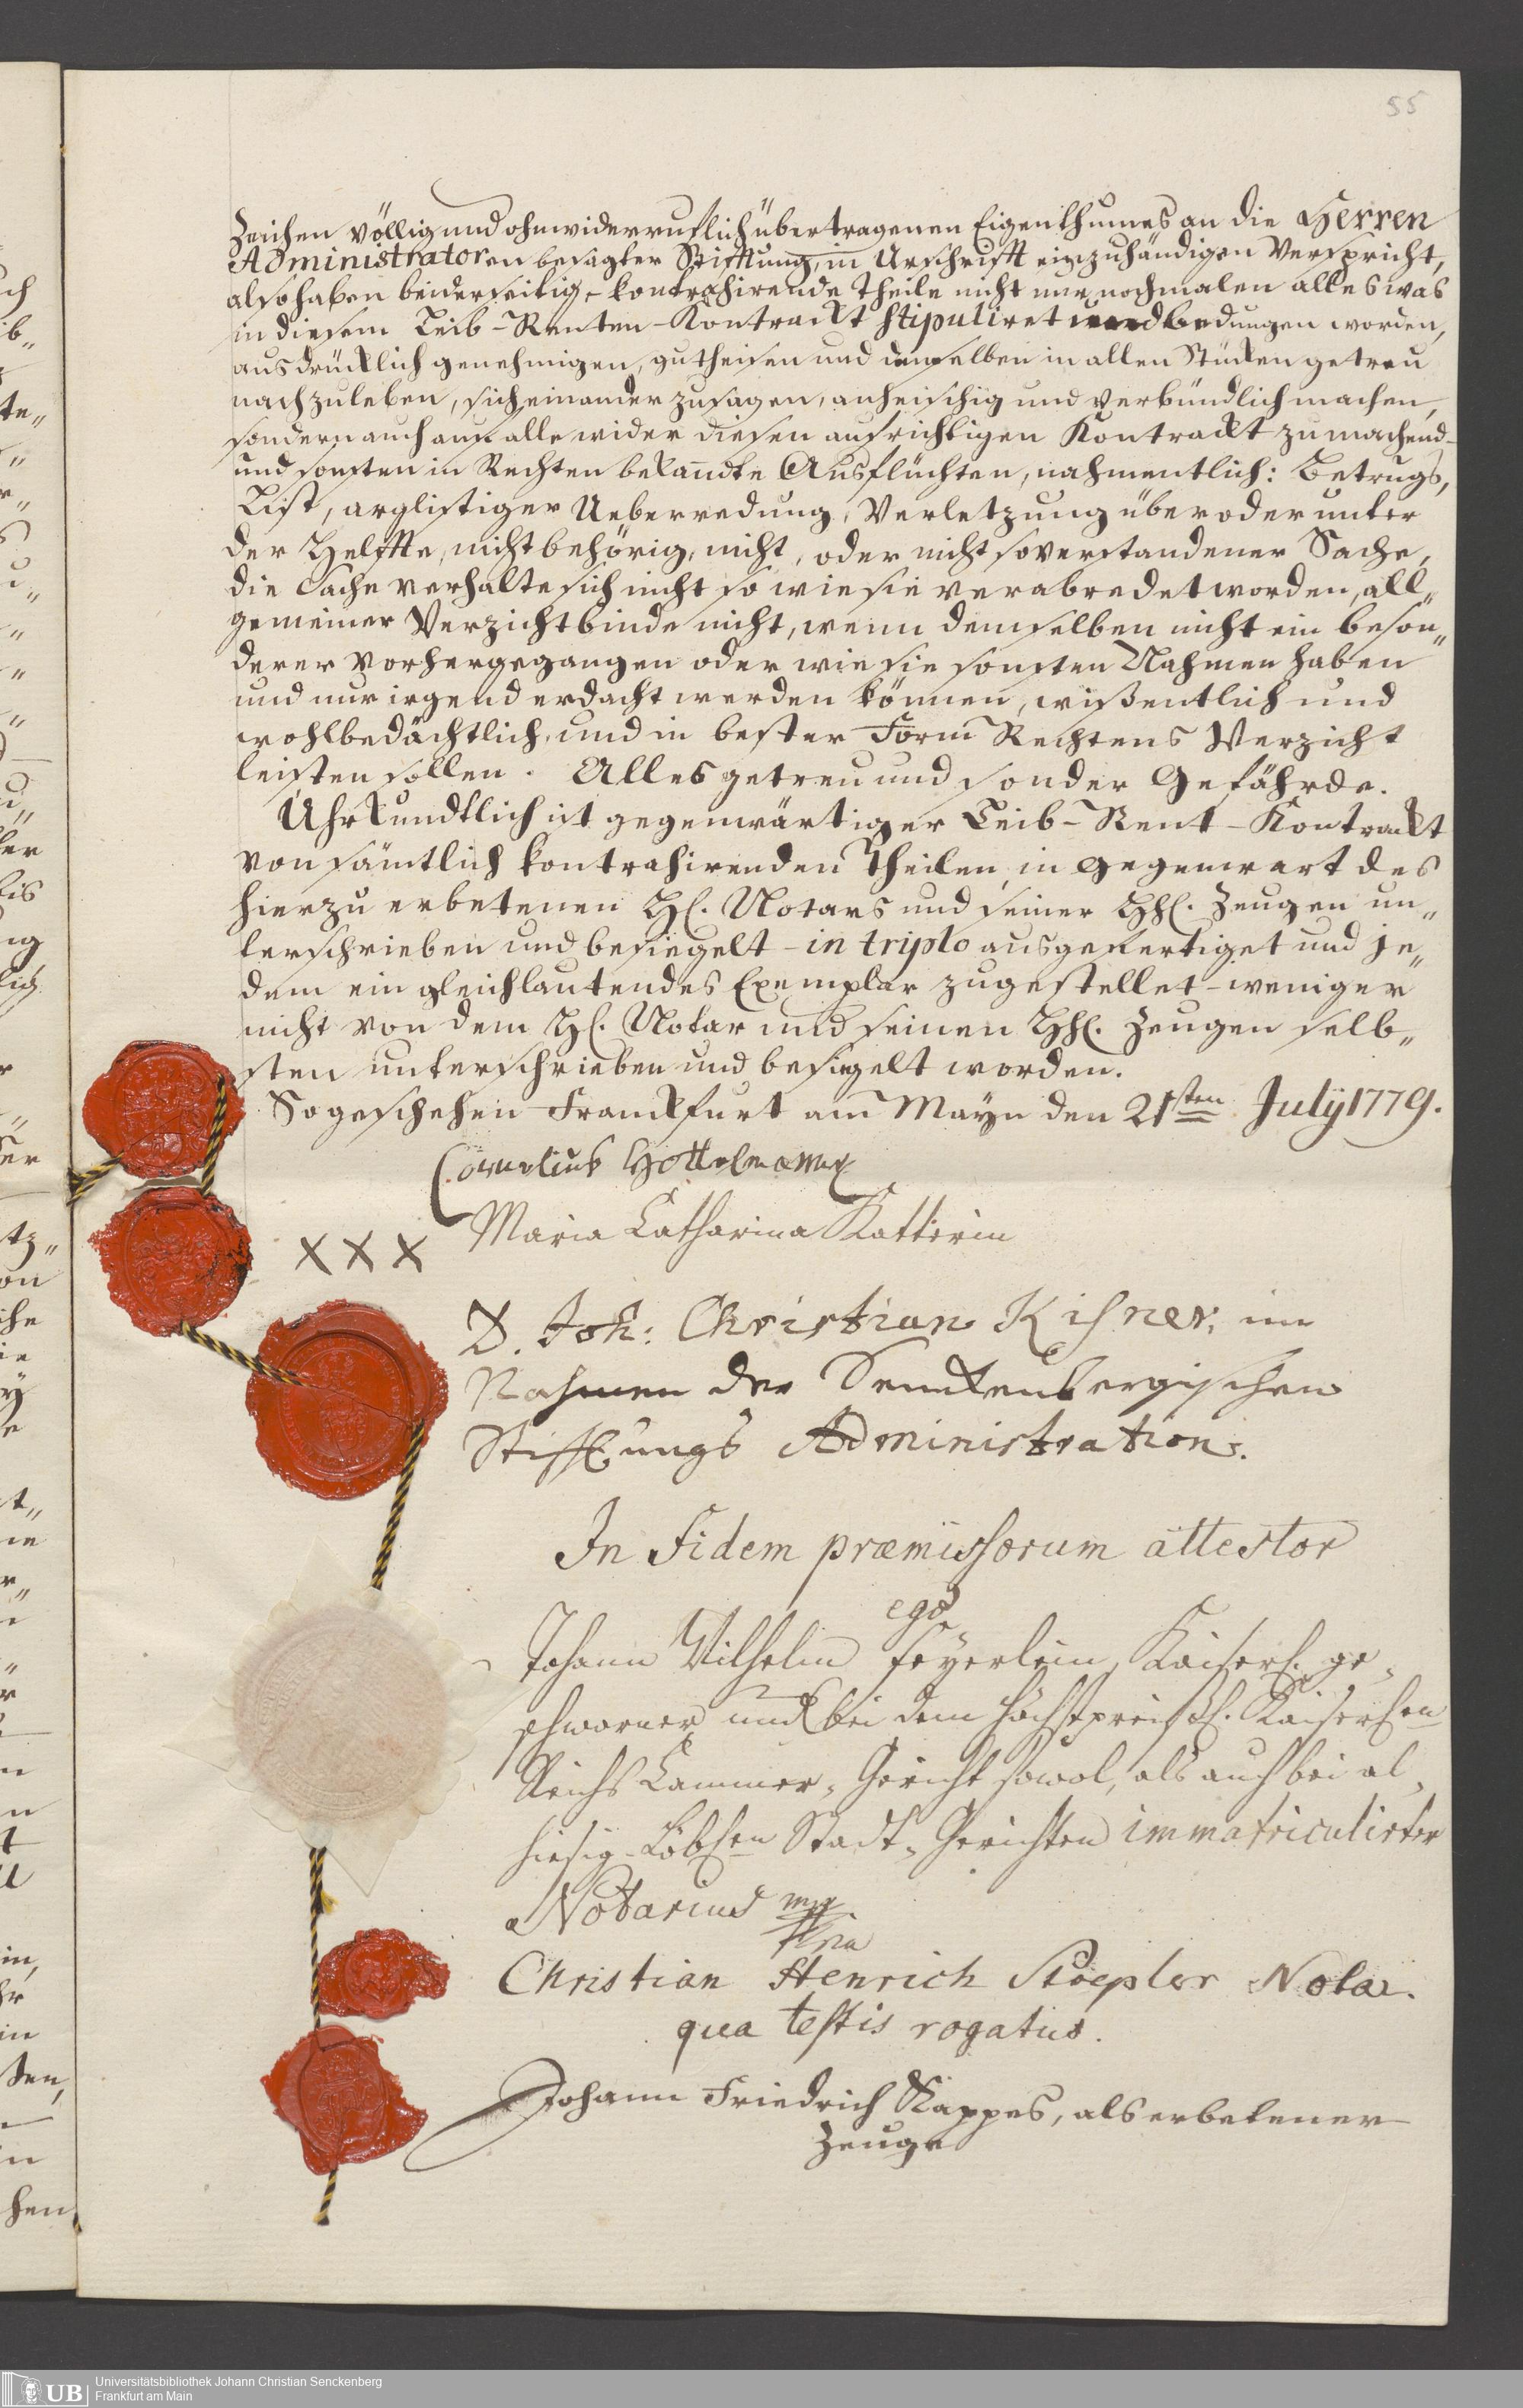 55
Zeichen völlig und ohnwiderruflich übertragenen Eigenthumes an die Herren
Administratoren besagter Stifftung, in Urschrifft einzuhändigen verspricht,
also haben beiderseitig-kontrahirende Theile nicht nur nochmalen alles was
in diesem Leib-Renten-Kontrackt stipuliret und bedungen worden,
ausdrücklich genehmigen, gutheisen und demselben in allen Stücken getreu
nachzuleben, sich einander zusagen, anheischig und verbündlich machen,
sondern auch auf alle wider diesen aufrichtigen Kontrackt zu machend-
und sonsten in Rechten bekandte Ausflüchten, nahmentlich: Betrugs,
List, arglistiger Ueberredung, Verletzung über oder unter
der Helffte, nicht behörig, nicht, oder nicht so verstandener Sache,
die Sache verhalte sich nicht so wie sie verabredet worden, all„
gemeiner Verzicht binde nicht, wenn demselben nicht ein beson„
derer vorhergegangen oder wie sie sonsten Nahmen haben
und nur irgend erdacht werden können, wißentlich und
wohlbedächtlich, und in bester Form Rechtens Verzicht
leisten sollen. Alles getreu und sonder Gefährde.
Uhrkundtlich ist gegenwärtiger Leib-Rent-Kontrackt
von sämtlich kontrahirenden Theilen, in Gegenwart des
hierzu erbetenen H. Notars und seiner HH. Zeugen un„
terschrieben und besiegelt - in triplo ausgefertiget und je„
dem ein gleichlautendes Exemplar zugestellet - weniger
nicht von dem H. Notar und seinen HH. Zeugen selb„
sten unterschrieben und besiegelt worden.
So geschehen Franckfurt am Mayn den 21sten July 1779.
Cornelius
XXX Maria Catharina Katterin
D. Joh: Christian Kisner, im
Nahmen der Senckenbergischen
Stifftungs Administration.
In fidem præmissorum attestor
ego
Johann Wilhelm Feyerlein, Kaiserl. ge„
schworner und bei dem höchstpreißl. Kaiserlen
Reichs Cammer-Gericht sowol, als auch bei al„
hiesig-Löblen Stadt-Gerichten immatriculirter
Notarius mpp
Christian Henrich Stoepler Notar.
qua testis rogatus.
Johann Friedrich Kappes, als erbetener
Zeuge
UB Universitätsbibliothek Johann Christian Senckenberg
Frankfurt am Main